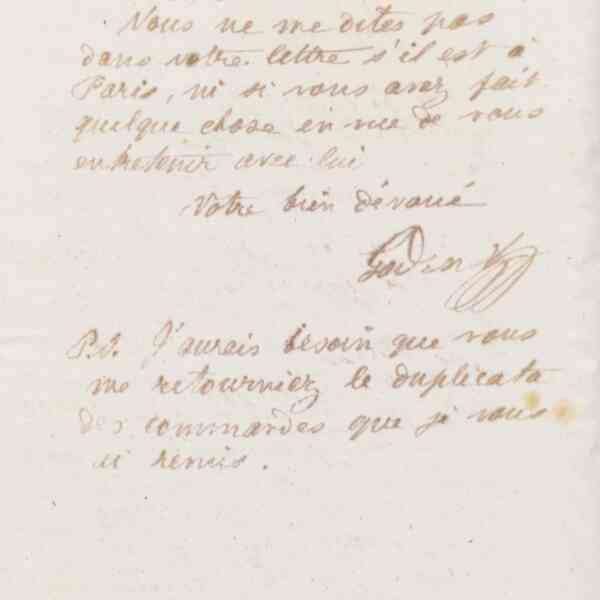 Vous ne me dites pas
dans votre lettre s'il est à
Paris, ni si vous avez fait
quelque chose en vue de vous
entretenir avec lui
Votre bien dévoué
Godin
P.S. J'aurais besoin que vous
me retourniez le duplicata
des commandes que je vous
ai remis.